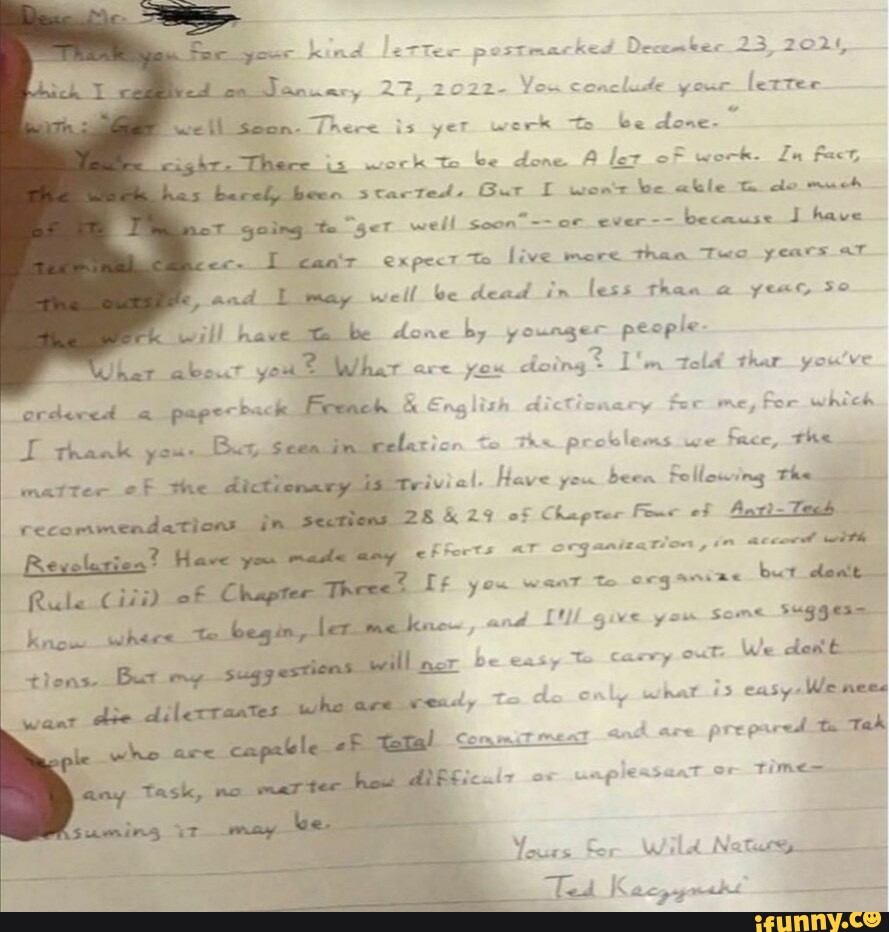 Dear Mr.
Thank you for your kind letter postmarked December 23, 2021,
which I received on January 27, 2022. You conclude your letter
with: "Get well soon. There is yet work to be done."
You're right. There is work to be done. A lot of work. In fact,
the work has barely been started. But I won't be able to do much
of it. I'm not going to "get well soon"--or ever--because I have
terminal cancer. I can't expect to live more than two years at
the outside, and I may well be dead in less than a year, so
the work will have to be done by younger people.
What about you? What are you doing? I'm told that you've
ordered a paperback French & English dictionary for me, for which
I thank you. But, seen in relation to the problems we face, the
matter of the dictionary is trivial. Have you been following the
recommendations in sections 28 & 29 of Chapter Four of Anti-Tech
Revolution? Have you made any efforts at organization, in accord with
Rule (iii) of Chapter Three? If you want to organize but don't
know where to begin, let me know, and I'll give you some sugges-
tions. But my suggestions will not be easy to carry out. We don't
want die dilettantes who are ready to do only what is easy. We need
people who are capable of total commitment and are prepared to tak
any task, no matter how difficult or unpleasant or time-
consuming it may be.
Yours for Wild Nature,
Ted Kaczynski
ifunny.co